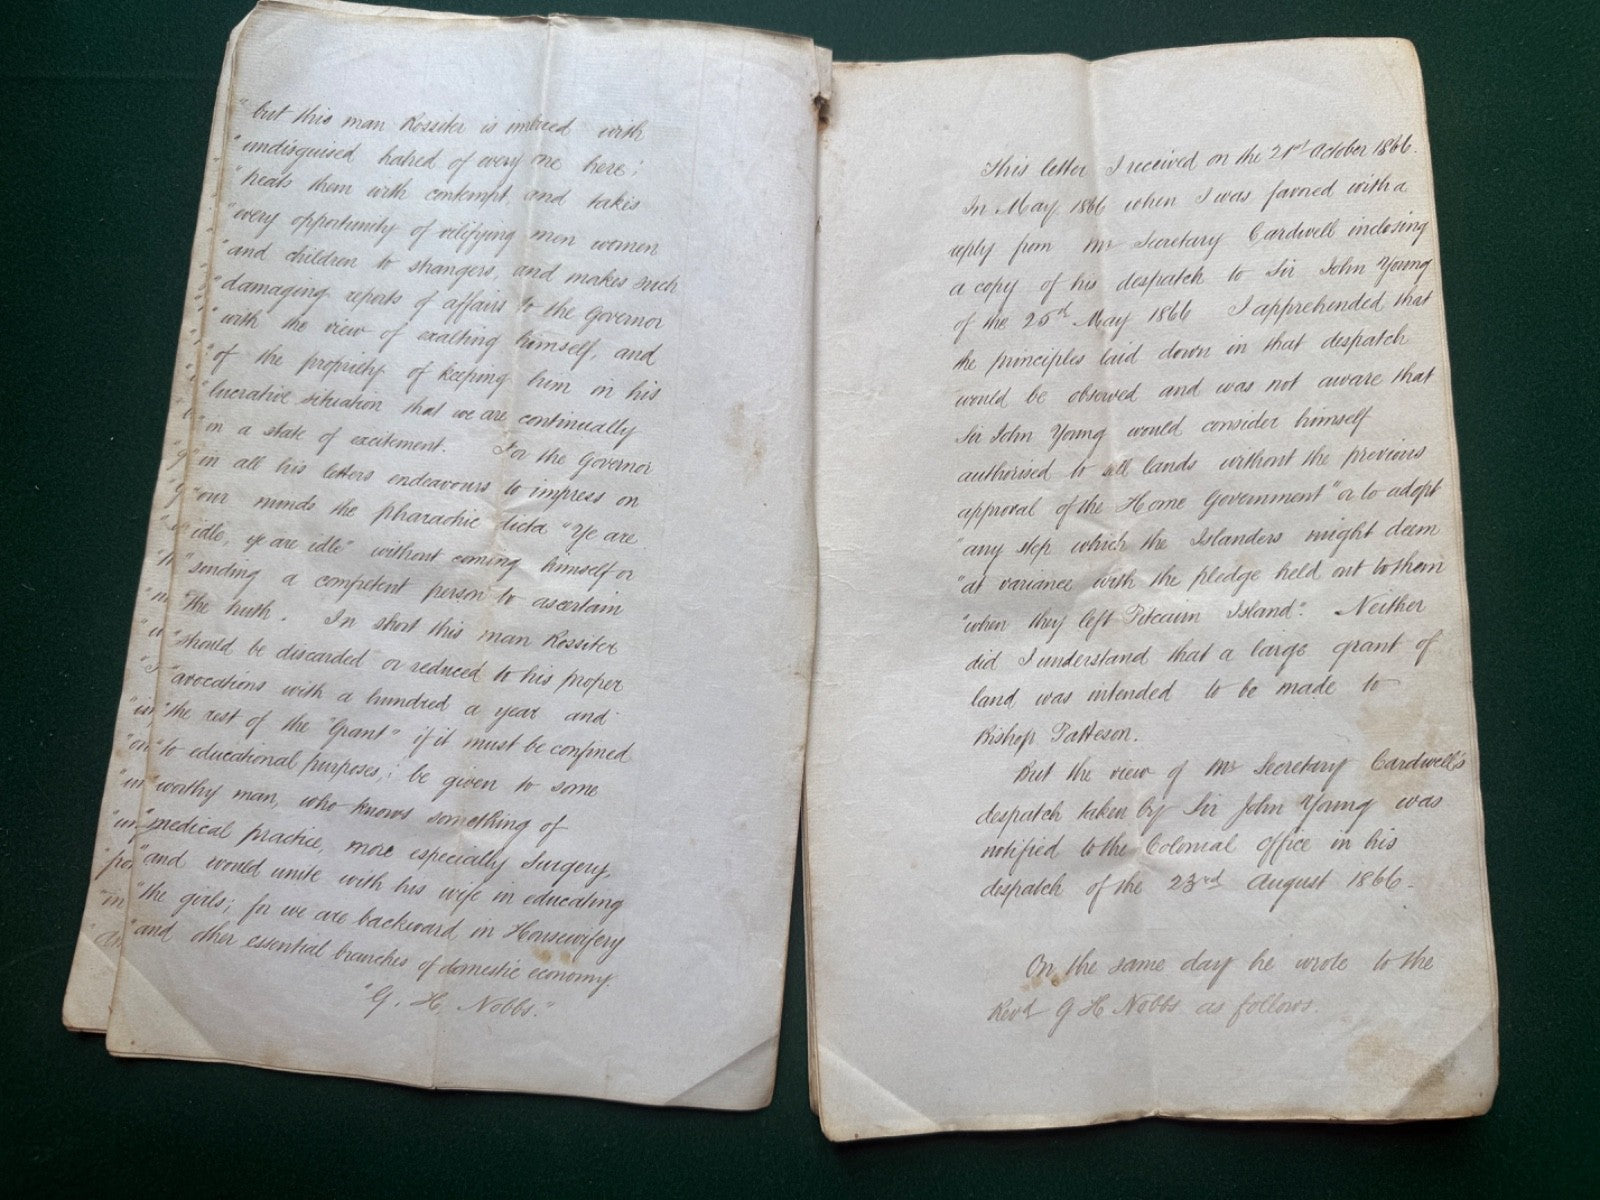 "but this man Rossiter is imbued with
"undisguised hatred of every one here;
"treats them with contempt and takes
"every opportunity of vilifying men women
"and children to strangers, and makes such
"damaging reports of affairs to the Governor
"with the view of exalting himself, and
"of the propriety of keeping him in his
"lucrative situation that we are continually
"in a state of excitement. For the Governor
"in all his letters endeavours to impress on
"our minds the pharaohic dicta "Ye are
idle, ye are idle" without coming himself or
"sending a competent person to ascertain
"the truth. In short this man Rossiter
"should be discarded or reduced to his proper
"avocations with a hundred a year and
"the rest of the "Grant" if it must be confined
"to educational purposes, be given to some
"worthy man, who knows something of
"medical practice, more especially Surgery,
"and would unite with his wife in educating
"the girls; for we are backward in Housewifery
"and other essential branches of domestic economy.
"G. H. Nobbs."
This letter I received on the 21st October 1866.
In May 1866 when I was favored with a
reply from Mr Secretary Cardwell inclosing
a copy of his despatch to Sir John Young
of the 25th May 1866 I apprehended that
the principles laid down in that despatch
would be observed and was not aware that
Sir John Young would consider himself
authorised to sell lands without the previous
approval of the Home Government "or to adopt
"any step which the Islanders might deem
"at variance with the pledge held out to them
"when they left Pitcairn Island". Neither
did I understand that a large grant of
land was intended to be made to
Bishop Patteson.
But the view of Mr Secretary Cardwell's
despatch taken by Sir John Young was
notified to the Colonial Office in his
despatch of the 23rd August 1866.
On the same day he wrote to the
Revd G H Nobbs as follows.